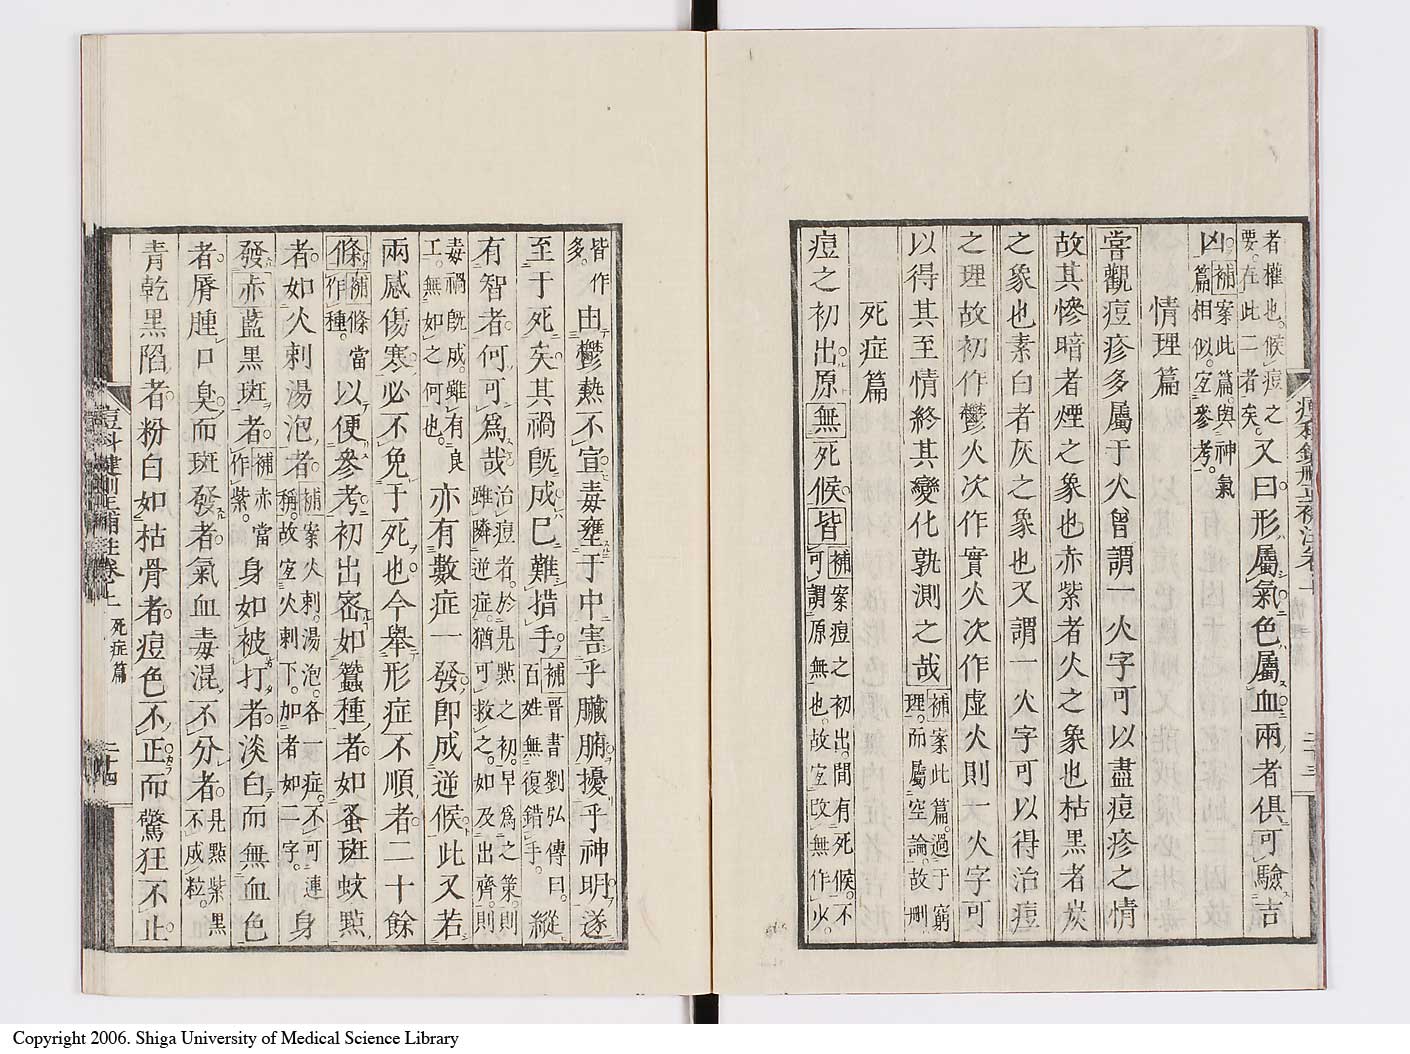 者權也。候痘之
要。在此二者矣。又曰形屬氣色屬血兩者俱可驗吉
凶。補案此篇。與神氣
篇相似。宜參考。
情理篇
嘗觀痘疹多屬于火曾謂一火字可以盡痘疹之情
故其慘暗者煙之象也赤紫者火之象也枯黑者炭
之象也素白者灰之象也又謂一火字可以得治痘
之理故初作鬱火次作實火次作虛火則一火字可
以得其至情終其變化孰測之哉補案此篇。過于窮
理。而屬空論。故刪
死症篇
痘之初出原無死候皆補案痘之初出。間有死候。不
可謂原無也。故宜改無作少。
皆作
多。由鬱熱不宣毒壅于中害乎臟腑擾乎神明遂
至于死矣其禍旣成已難措手補晉書劉弘傳曰。縱
百姓無復錯手。
有智者何可爲哉治痘者。於見㸃之初。早爲之策。則
雖隣逆症。猶可救之。如及出齊。則
毒禍旣成。雖有良
工。無如之何也。亦有數症一發卽成逆候此又若
兩感傷寒必不免于死也今舉形症不順者二十餘
條補條當
作種。以便參考初出密如蠶種者如蚤斑蚊㸃
者。如火刺湯泡者補案火刺。湯泡。各一症。不可連
稱。故宜火刺下。加者如二字。身
發赤藍黑斑者。補赤當
作紫。身如被打者淡白而無血色
者。脣腫口臭而斑發者氣血毒混不分者見㸃紫黑
不成粒。
青乾黑陷者。粉白如枯骨者。痘色不正而驚狂不止
痘科鍵刪正補註卷上 死症篇 二十四